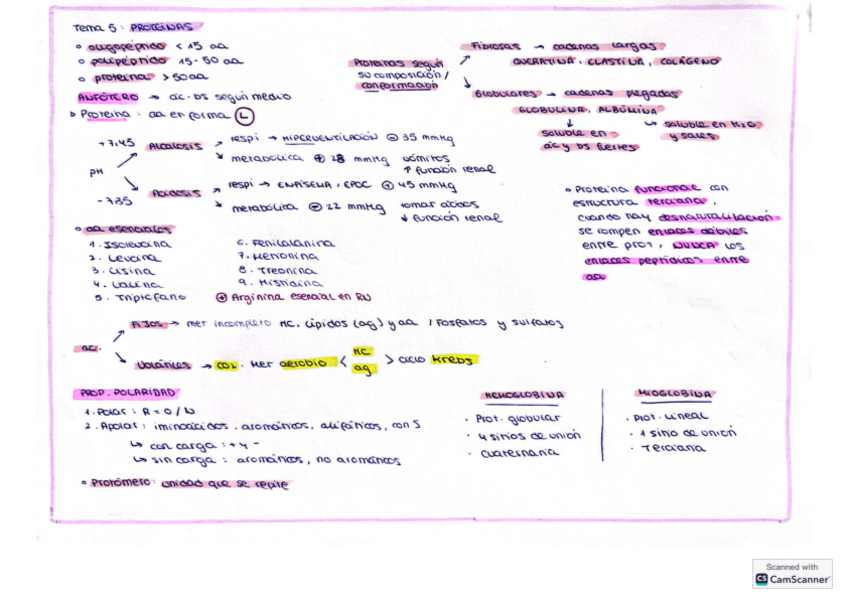 Tema 5: PROTEÍNAS
• oligopéptido < 15 aa
• polipéptido 15-50 aa
• proteína > 50 aa
ANFÓTERO → ác-bs según medio
▷ Proteína: aa en forma L
Proteínas según
su composición /
conformación
Fibrosas → cadenas largas
QUERATINA, ELASTINA, COLÁGENO
Globulares → cadenas plegadas
GLOBULINA, ALBÚMINA
soluble en
ác y bs fuertes
↳ soluble en H2O
y sales
pH
+7,45 Alcalosis
respi → HIPERVENTILACIÓN ⊕ 35 mmHg
metabólica ⊕ 28 mmHg vómitos
↑ función renal
-7,35 Acidosis
respi → ENFISEMA, EPOC ⊕ 45 mmHg
metabólica ⊕ 22 mmHg tomar ácidos
↓ función renal
• Proteína funcional con
estructura terciaria,
cuando hay desnaturalización
se rompen enlaces débiles
entre prot, NUNCA los
enlaces peptídicos entre
aa
• aa esenciales
1. Isoleucina
2. Leucina
3. Lisina
4. Valina
5. Triptófano
6. Fenilalanina
7. Metionina
8. Treonina
9. Histidina
⊕ Arginina esencial en RN
ac.
Fijos → met incompleto HC, lípidos (ag) y aa / Fosfatos y sulfatos
Volátiles → CO2. Met aerobio < HC
ag > ciclo Krebs
PROP. POLARIDAD
1. Polar: R = O / N
2. Apolar: iminoácidos, aromáticos, alifáticos, con S
↳ con carga: + y -
↳ sin carga: aromáticos, no aromáticos
• Protómero: unidad que se repite
HEMOGLOBINA
· Prot. globular
· 4 sitios de unión
· Cuaternaria
MIOGLOBINA
· Prot. Lineal
· 1 sitio de unión
· Terciaria
Scanned with
CS CamScanner